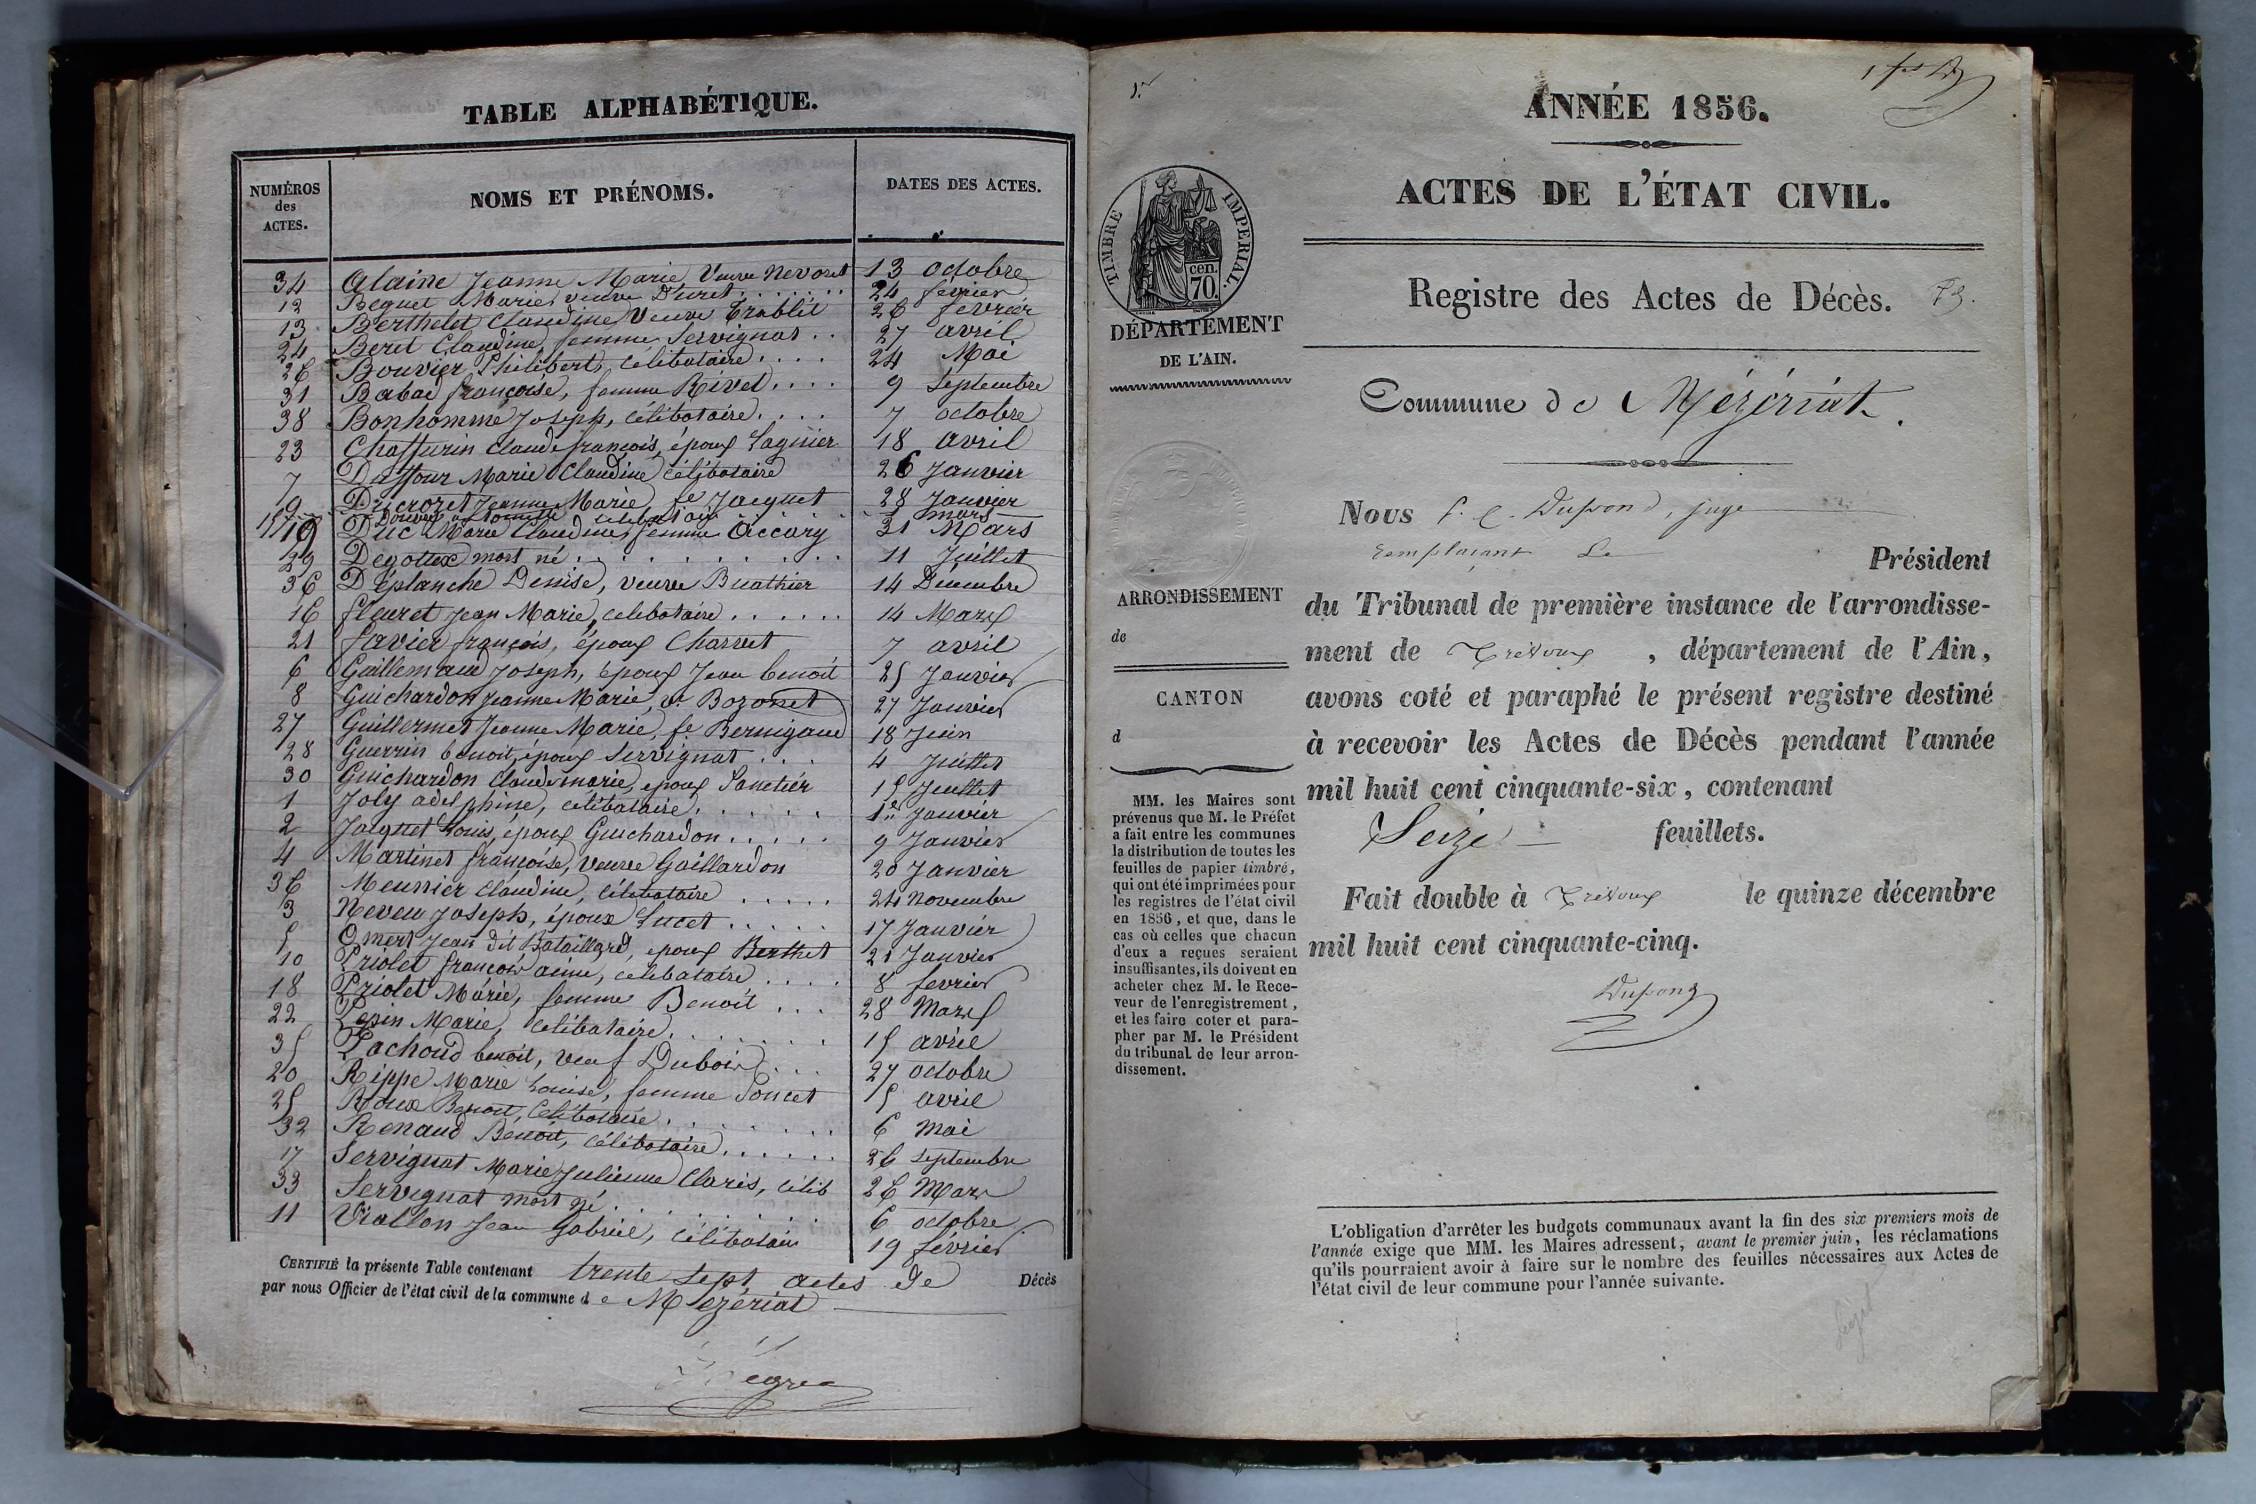 TABLE ALPHABÉTIQUE.
NUMÉROS des ACTES. NOMS ET PRÉNOMS. DATES DES ACTES.
34 Alaine Jeanne Marie Veuve Nevoret 13 octobre
12 Beguet Marie, veuve Duret 24 fevrier
13 Berthelet Claudine Veuve Trablit 26 fevrier
24 Beret Claudine femme Servignat 27 avril
26 Bouvier Philibert, Célibataire 24 Mai
31 Babad françoise, femme Rivet 9 Septembre
38 Bonhomme Joseph, Célibataire 7 octobre
23 Chaffurin Claude françois, époux Lagnier 18 avril
7 Duffour Marie Claudine Célibataire 26 Janvier
9 Ducrozet Jeanne Marie fe Jacquet 28 Janvier
15 mars
19 Duc Marie Claudine, femme Occary 31 Mars
29 Degottex mort né 11 Juillet
36 Déplanche Denise, veuve Buathier 14 Décembre
16 fleuret Jean Marie, celibataire 14 Mars
21 favier françois, époux Charvet 7 avril
6 Guillemaud Joseph, époux Jean benoit 25 Janvier
8 Guichardon Jeanne Marie, ve Bozonet 27 Janvier
27 Guillermet Jeanne Marie, fe Bernigaud 18 Juin
28 Guerrin benoit, époux Servignat 4 Juillet
30 Guichardon Claude marie, epoux Panetier 15 Juillet
1 Joly adelphine, célibataire 1er Janvier
2 Jacquet Louis, époux Guichardon 9 Janvier
4 Martinet françoise, veuve Gaillardon 20 Janvier
36 Meunier Claudine, Célibataire 24 Novembre
3 Neveu Joseph, époux Lucet 17 Janvier
5 Omert Jean dit Bataillard, epoux Berthet 21 Janvier
10 Priolet françois ainé, célibataire 8 fevrier
18 Priolet Marie, femme Benoit 28 Mars
22 Pepin Marie, Célibataire 15 avril
35 Pachoud benoit, veuf Dubois 27 octobre
20 Rippe Marie Louise, femme Poncet 5 avril
25 Roux Benoit, Célibataire 6 Mai
32 Renaud Benoit, Célibataire 26 Septembre
17 Servignat Marie Julienne Claris, célib 26 Mars
33 Servignat mort né 6 octobre
11 Viallon Jean Gabriel, Célibataire 19 février
CERTIFIÉ la présente Table contenant trente sept actes de Décès
par nous Officier de l'état civil de la commune d e Mezériat
1 fet
ANNÉE 1856.
ACTES DE L'ÉTAT CIVIL.
TIMBRE IMPERIAL.
70 cen.
DÉPARTEMENT
DE L'AIN.
Registre des Actes de Décès. 73.
Commune de Mézériat.
Nous f. C. Dupond, juge
remplaçant Le Président
ARRONDISSEMENT
de
CANTON
d
du Tribunal de première instance de l'arrondisse-
ment de Trévoux, département de l'Ain,
avons coté et paraphé le présent registre destiné
à recevoir les Actes de Décès pendant l'année
mil huit cent cinquante-six, contenant
Seize feuillets.
Fait double à Trévoux le quinze décembre
mil huit cent cinquante-cinq.
Dupond
MM. les Maires sont
prévenus que M. le Préfet
a fait entre les communes
la distribution de toutes les
feuilles de papier timbré,
qui ont été imprimées pour
les registres de l'état civil
en 1856, et que, dans le
cas où celles que chacun
d'eux a reçues seraient
insuffisantes, ils doivent en
acheter chez M. le Rece-
veur de l'enregistrement,
et les faire coter et para-
pher par M. le Président
du tribunal de leur arron-
dissement.
L'obligation d'arrêter les budgets communaux avant la fin des six premiers mois de
l'année exige que MM. les Maires adressent, avant le premier juin, les réclamations
qu'ils pourraient avoir à faire sur le nombre des feuilles nécessaires aux Actes de
l'état civil de leur commune pour l'année suivante.